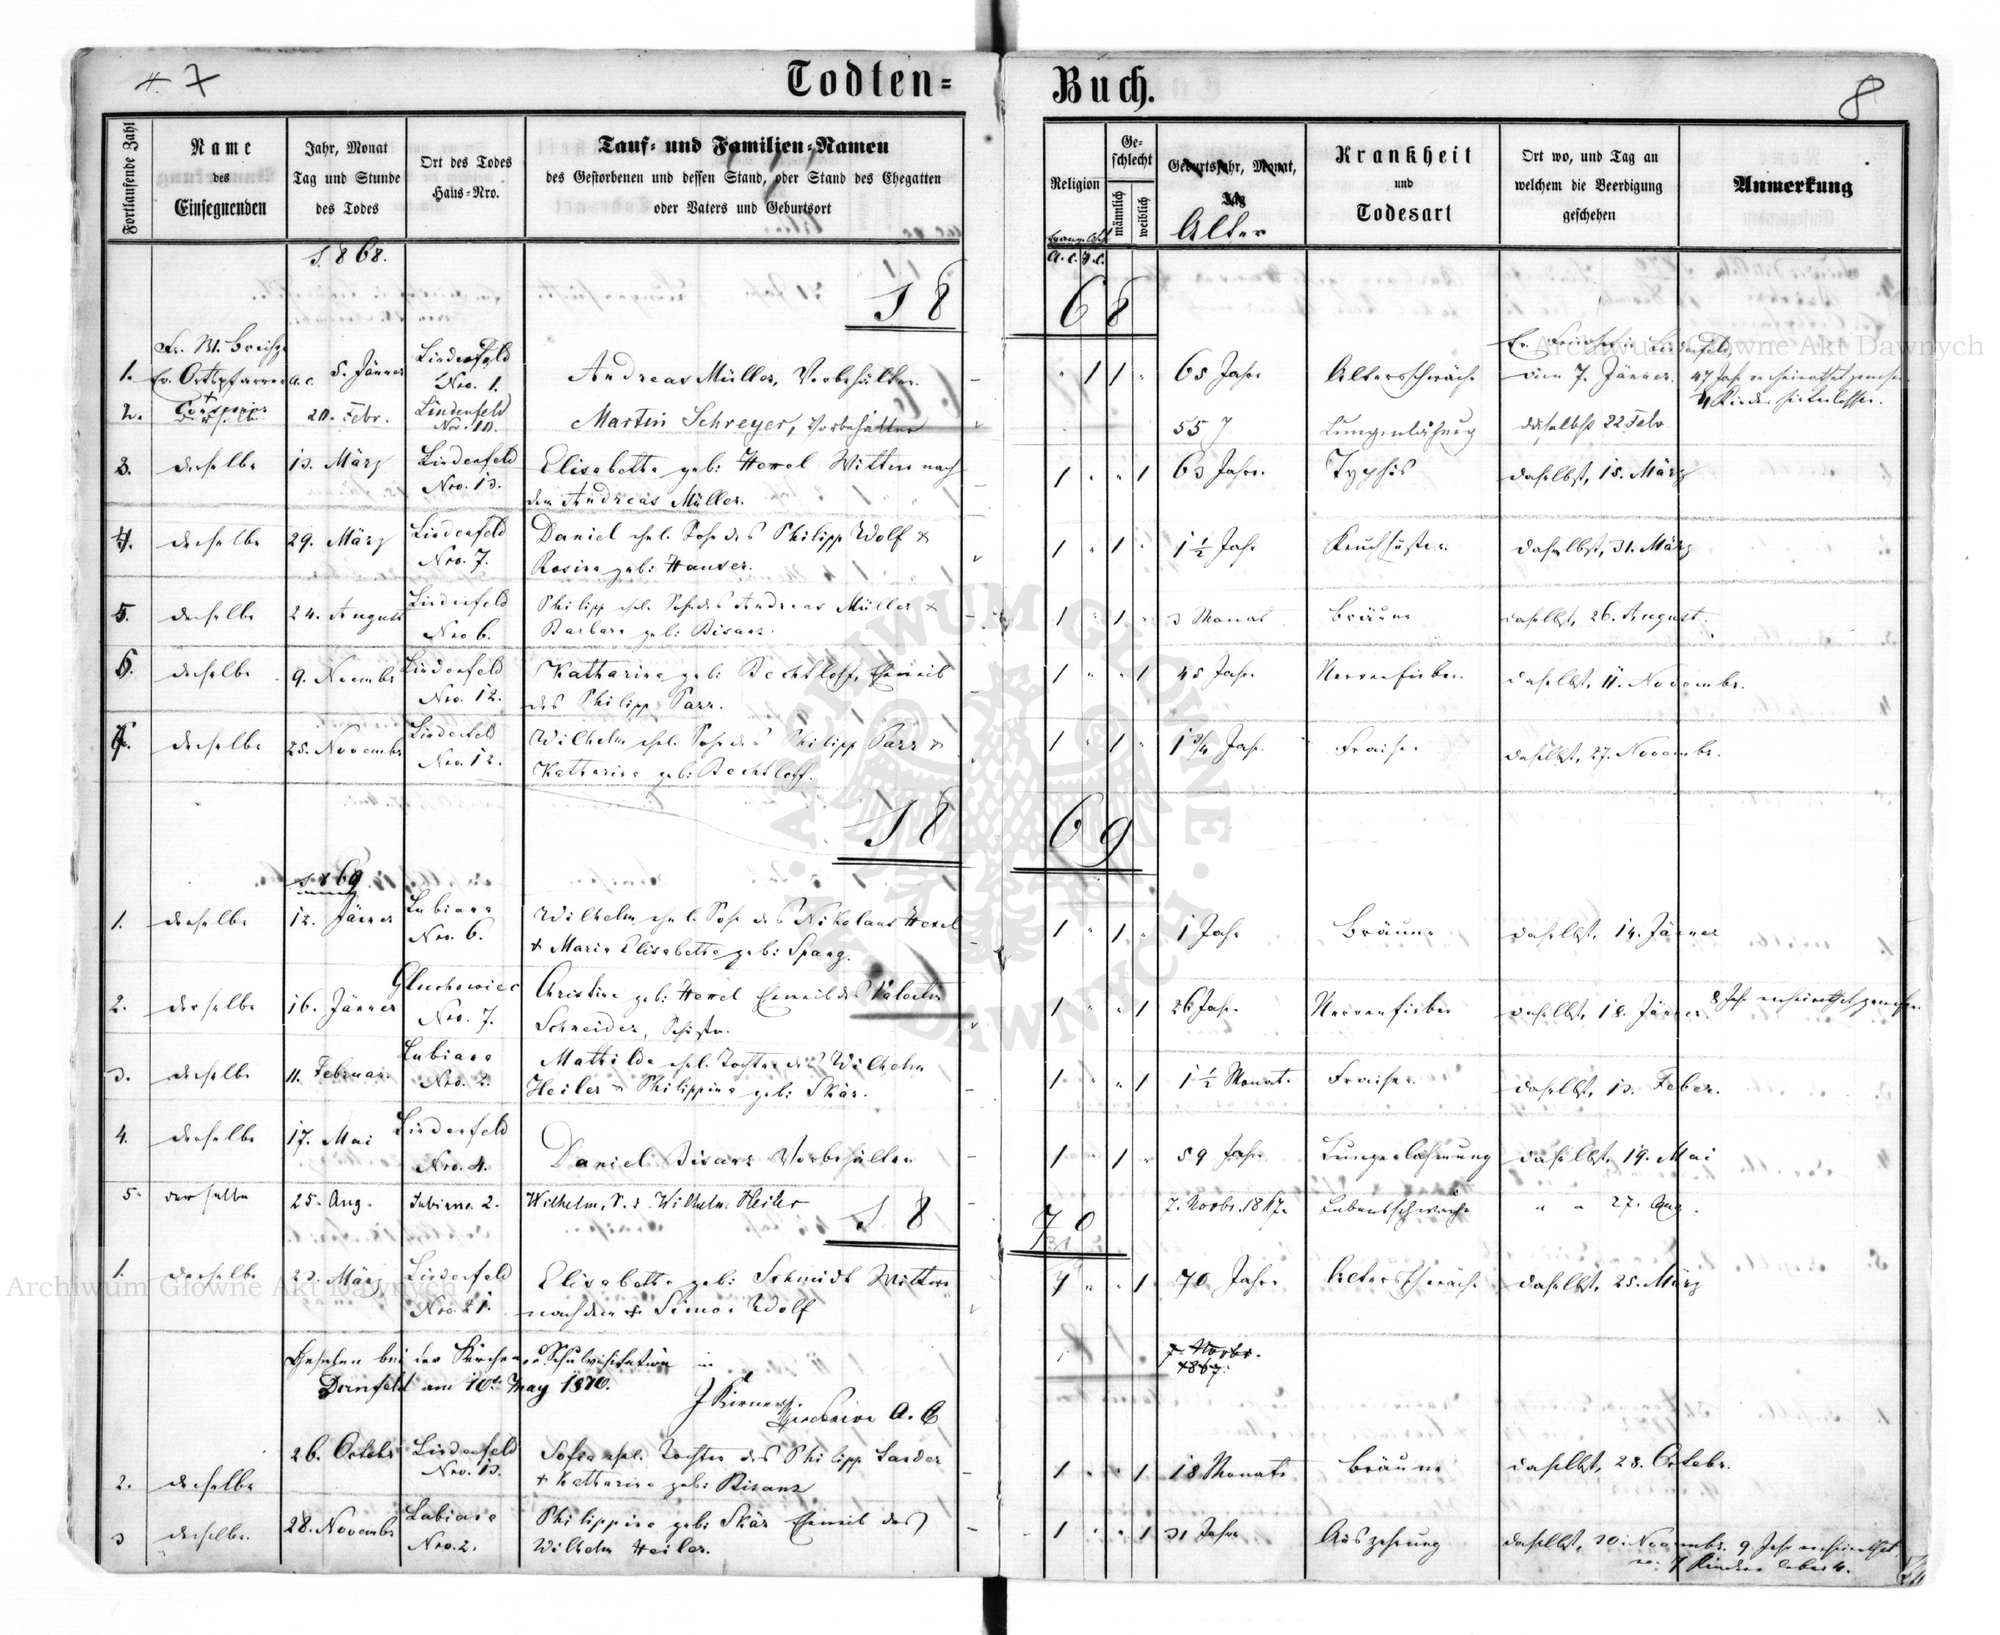 7
Todten-
Buch.
8
Fortlaufende Zahl
Name
des
Einsegnenden
Jahr, Monat
Tag und Stunde
des Todes
Ort des Todes
Haus-Nro.
Tauf- und Familien-Namen
des Gestorbenen und dessen Stand, oder Stand des Ehegatten
oder Vaters und Geburtsort
Religion
A. C. H. C.
Ge-
schlecht
männlich
weiblich
Geburtsjahr, Monat,
Tag
Alter
Krankheit
und
Todesart
Ort wo, und Tag an
welchem die Beerdigung
geschehen
Anmerkung
1868.
18 68
1. Ev. Ortspfarrer A. C. 5. Jänner Lindenfeld
Nro. 1. Andreas Müller, Vorbehälter 1 1 65 Jahre Altersschwäche den 7. Jänner. 47 Jahr verheirathet gewesen
4 Kinder hinterlassen.
2. 20. Febr. Lindenfeld
Nro. 10. Martin Schreyer, Vorbehälter 55 Lungenlähmung daselbst 22 Feb
3. derselbe 13. März Lindenfeld
Nro. 13. Elisabetha geb: Hexel Wittwe nach
dem Andreas Müller. 1 " " 1 63 Jahre. Typhus daselbst, 15. März
4. derselbe 29. März Lindenfeld
Nro. 7. Daniel ehel. Sohn des Philipp Wolf &
Rosina geb: Hauser. 1 " 1 " 1 1/2 Jahr Keuchhusten daselbst, 31. März
5. derselbe 24. August Lindenfeld
Nro 6. Philipp ehel. Sohn des Andreas Müller &
Barbara geb: Bisanz. 1 " 1 " 3 Monat Bräune daselbst, 26. August.
6. derselbe 9. November Lindenfeld
Nro. 12. Katharina geb: Bechtloff, Eheweib
des Philipp Parr. 1 " " 1 45 Jahre Nervenfieber. daselbst, 11. Novembr.
7. derselbe 25. November Lindenfeld
Nro. 12. Wilhelm ehel. Sohn des Philipp Parr &
Katharina geb: Bechtloff. 1 " 1 " 1 3/4 Jahr Fraisen daselbst, 27. Novembr.
18 69
1869
1. derselbe 12. Jänner Lubiana
Nro. 6. Wilhelm ehel. Sohn des Nikolaus Hexel
& Maria Elisabetha geb: Spang. 1 " 1 " 1 Jahr Bräune daselbst, 14. Jänner
2. derselbe 16. Jänner Gluchowiec
Nro. 7. Christina geb: Hexel Eheweib des Valentin
Schneider, 1 " " 1 26 Jahre Nervenfieber daselbst, 18. Jänner. 8 Jahr verheirathet gewesen.
3. derselbe 11. Februar. Lubiana
Nro. 2. Mathilde ehel. Tochter des Wilhelm
Heiler & Philippina geb: Skär. 1 " " 1 1 1/2 Monat. Fraisen daselbst, 13. Feber.
4. derselbe 17. Mai Lindenfeld
Nro. 4. Daniel Bisanz Vorbehälter 1 " 1 " 59 Jahre Lungenlähmung daselbst, 19. Mai
5. derselbe 25. Aug. Lubiana 2. Wilhelm, S. d. Wilhelm Heiler 7. Novbr. 1867. Lebensschwäche " " 27. Aug.
18 70
1. derselbe 23. März Lindenfeld
Nro. 21. Elisabetha geb: Schmidt Wittwe
nach dem + Simon Wolf 1 " " 1 70 Jahre Altersschwäche daselbst, 25. März
Gesehen bei der Kirchen- u. Schulvisitation in
Dornfeld am 10t. May 1870.
7. Novbr.
1867.
2. derselbe 26. Octobr Lindenfeld
Nro. 13. Sofia ehel. Tochter des Philipp Sander
& Katharina geb: Bisanz 1 " " 1 18 Monate Bräune daselbst, 28. Octobr.
3 derselbe. 28. November Lubiana
Nro. 2. Philippina geb: Skär Eheweib des
Wilhelm Heiler. 1 " " 1 31 Jahre Auszehrung daselbst, 30. Novembr. 9 Jahr verheirathet
7 Kinder leben 4.
Archiwum Główne Akt Dawnych
Archiwum Główne Akt Dawnych
ARCHIWUM GŁÓWNE AKT DAWNYCH